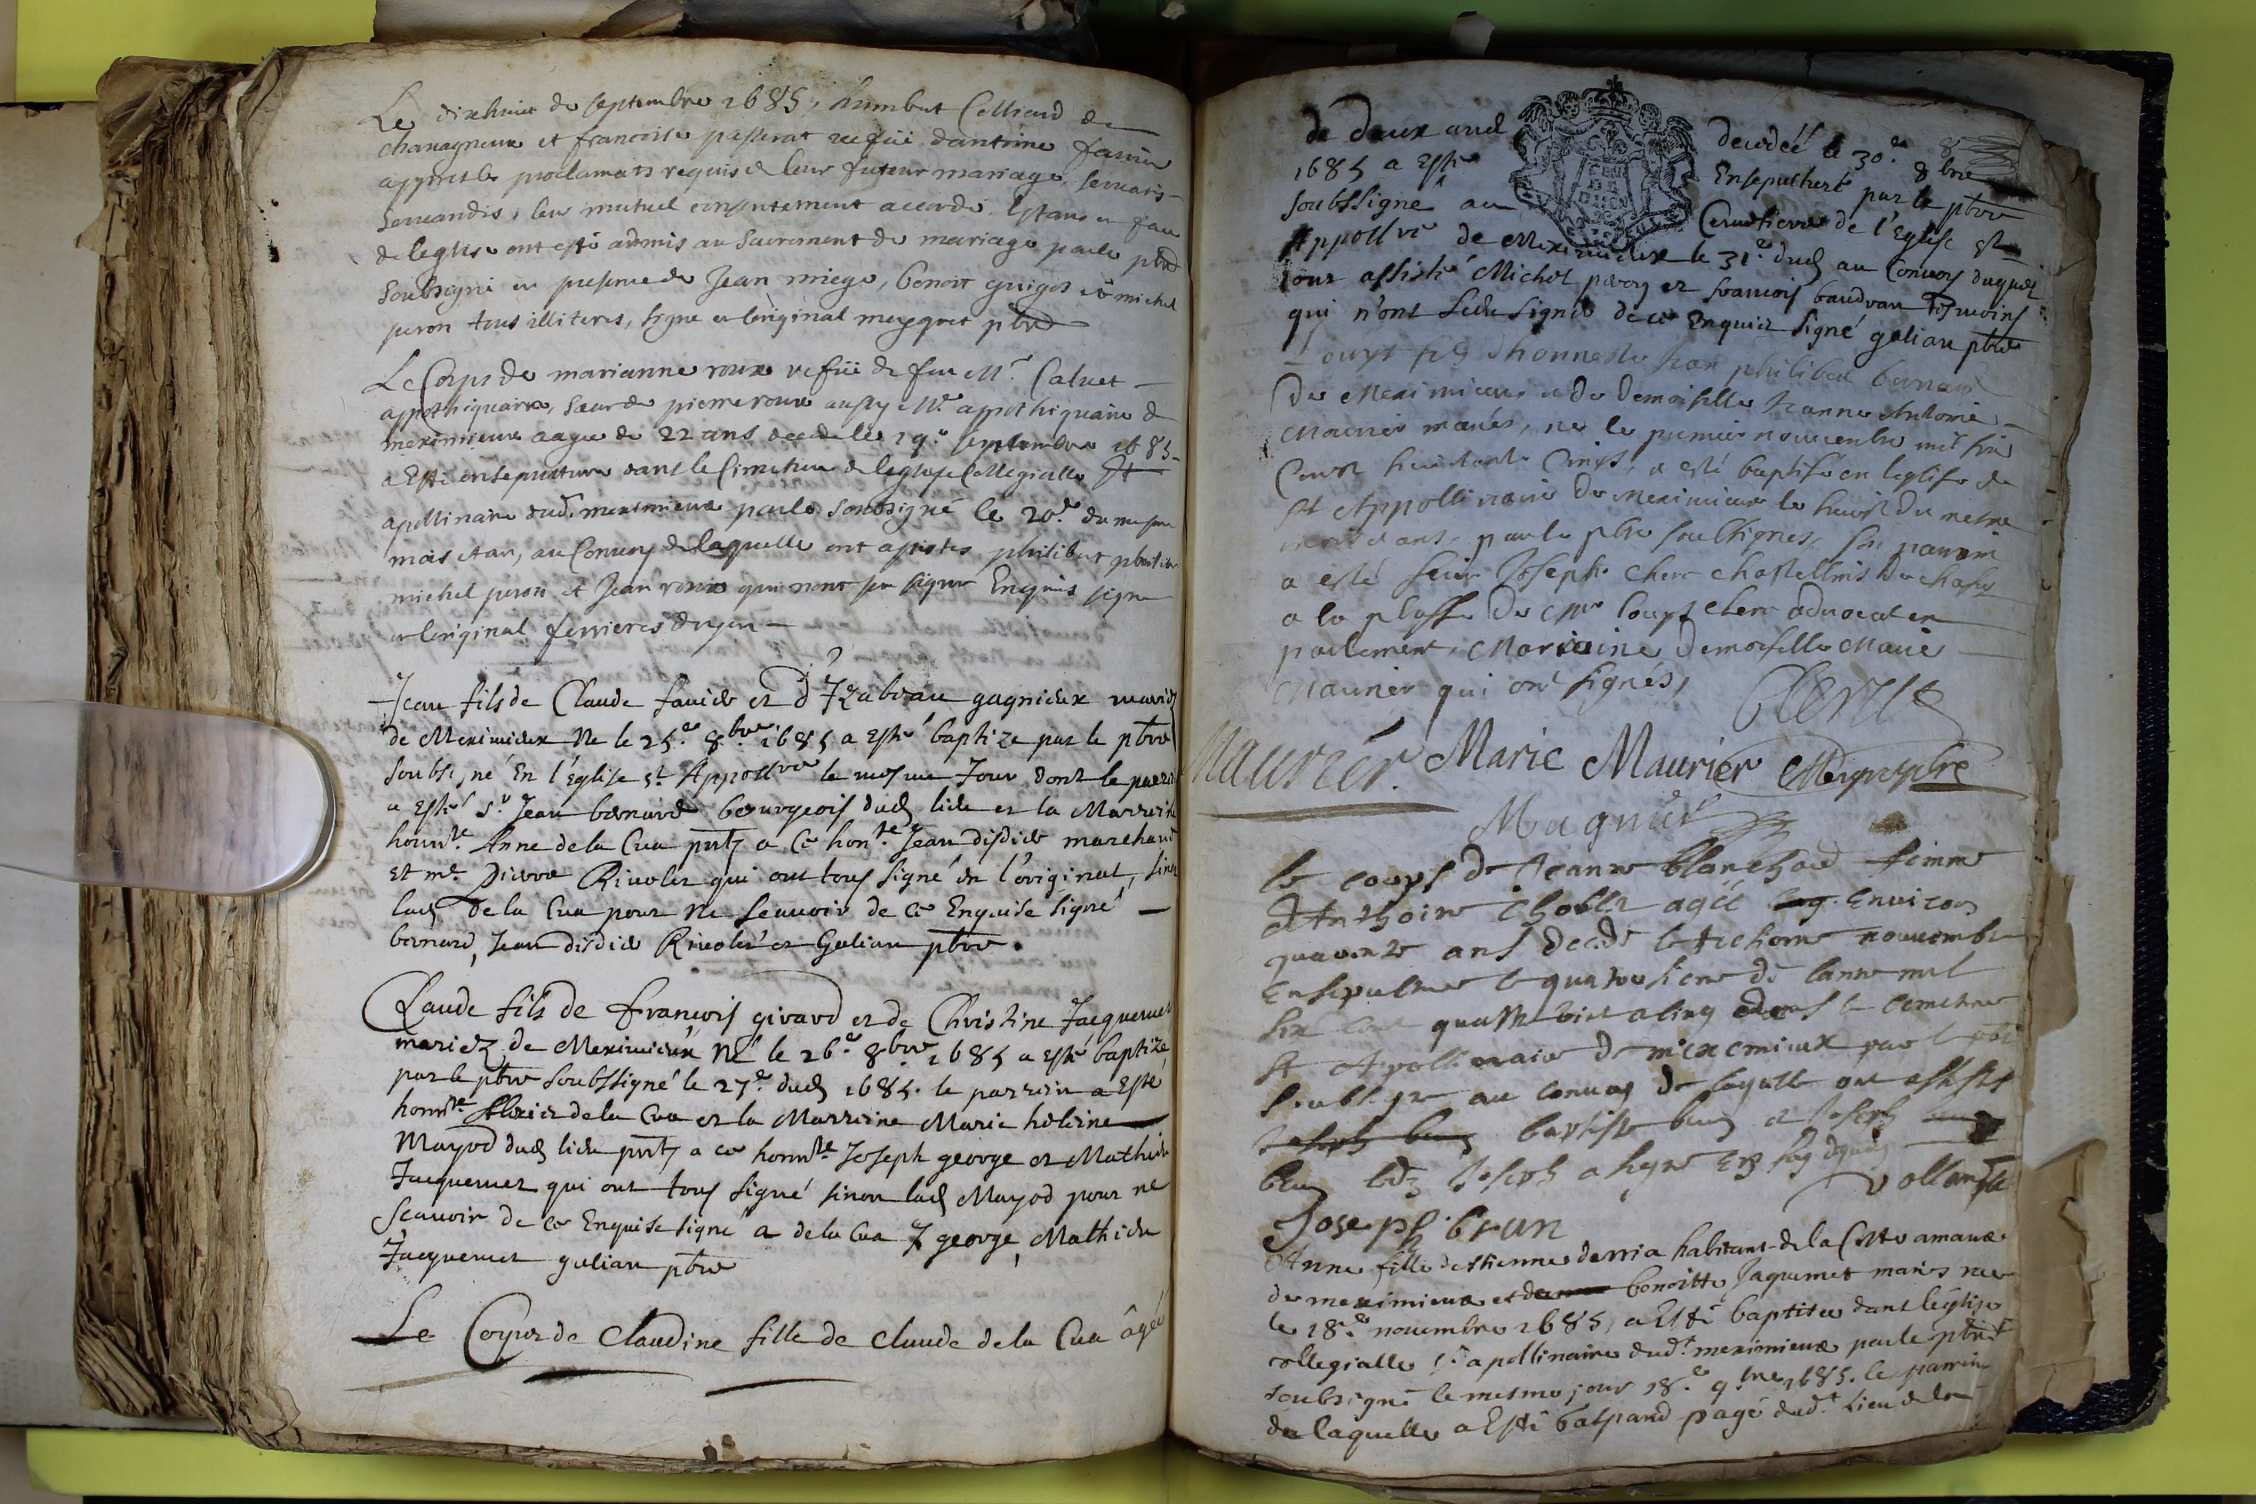 Le dixhuit de septembre 1685, humbert Colliard de
chanagneux et francoise passerat vefue dantoine
appres les proclamats requis de leur futeur mariage, servatis
servandis, leur mutuel consentement accordé Estans en face
de leglise ont esté admis au Sacrement de mariage par le pbre
soubsigné en presence de Jean miege, benoit guigot et michel
peron tous illiteres, signe en loriginal meyquet pbre
Le Corps de marianne roux vefue de feu Mr. Caluet
appothiquaire, sœur de pierre roux aussy Me appothiquaire de
meximieux aagee de 22 ans decedee le 19e septembre 1685
a Esté ensepulturee dans le Cimetiere de leglise Collegialle St
apollinaire dud. meximieux par le soubsigné le 20e du mesme
mois et an, au Convoy de laquelle ont assistes philibert
michel peron et Jean roux qui nont sceu signer Enquis signe
en loriginal ferrieres doyen
Jean fils de Claude fauier et d'Izabeau gagnieux mariez
de Meximieux Ne le 25e 8bre 1685 a esté baptize par le pbre
soubsigné En l'Eglise St Appollre le mesme Jour dont le parrain
a esté Sr Jean bernard bourgeois dud. lieu et la Marraine
honnte. Anne dela Cua pntz a ce honte. Jean disdier marchand
et me. Pierre Riuolet qui ont tous signé en l'original, sinon
lad. dela Cua pour ne scauoir de ce Enquise signé
bernard, Jean disdier Riuolet et Galian pbre.
Claude fils de francois girard et de Christine Jacquemet
mariez, de Meximieux Né le 26e 8bre 1685 a esté baptizé
par le pbre soubssigné le 27e dud. 1685. le parrain a esté
honnte. dela Cua et la Marraine Marie helaine
Mayod dud. lieu pntz a ce honnte Joseph george et Mathieu
Jacquemet qui ont tous signé sinon lad. Mayod pour ne
scauoir de ce Enquise signé a dela Cua J george, Mathieu
Jacquemet galian pbre
Le Corps de Claudine fille de Claude dela Cua âgée
de deux ans decedée le 30e 8bre
1685 a esté Ensepulturée par le pbre
soubssigné au Cemetiere de l'Eglise St
Appollre de Meximieux le 31e dud. au Convoy duquel
ont assisté Michel peron et francois baudran tesmoins
qui n'ont sceu signé de ce Enquis signé galian pbre
Louys fils d'honneste Jean philibert bernard
de Meximieux et de Demoiselle Jeanne Antoinie
Maurier mariés, né le premier nouvembre mil six
Cents huictante Cinq, a esté baptisé en leglise de
St Appollinaire de meximieux le huict du mesme
mois et ans, par le pbre soubsignes, son parrain
a esté sieur Joseph Clerc chastellain de
a la plasse de Mre louys Clerc aduocat en
parlement, Marraine Demoiselle Marie
Maurier qui ont signés,
Clerc
Maurier. Marie Maurier Meyquet pbre
Magnin
le corps de Jeanne blanchod femme
d'Anthoine Chollet agée Environ
quarente ans decede le nouuembre
Ensepulturee le quatorsieme de lanne mil
six cent quattre vint a cinq dans le cemetiere
St Apollinaire de meximieux par le
soubsigne au conuoy de laquelle ont assistes
baptiste brun et Joseph
brun led. Joseph a signe
vollant
Joseph brun
Anne fille destienne derria habitant de la Cotte amaux
de meximieux et benoitte Jaquemet mariés née
le 18e. nouembre 1685, a Esté baptisee dans leglise
collegialle St apollinaire dud.t meximieux par le pbre
soubsigné le mesme jour 18e. 9bre 1685. le parrin
de laquelle a Esté Gaspard pagé dud.t Lieu de la